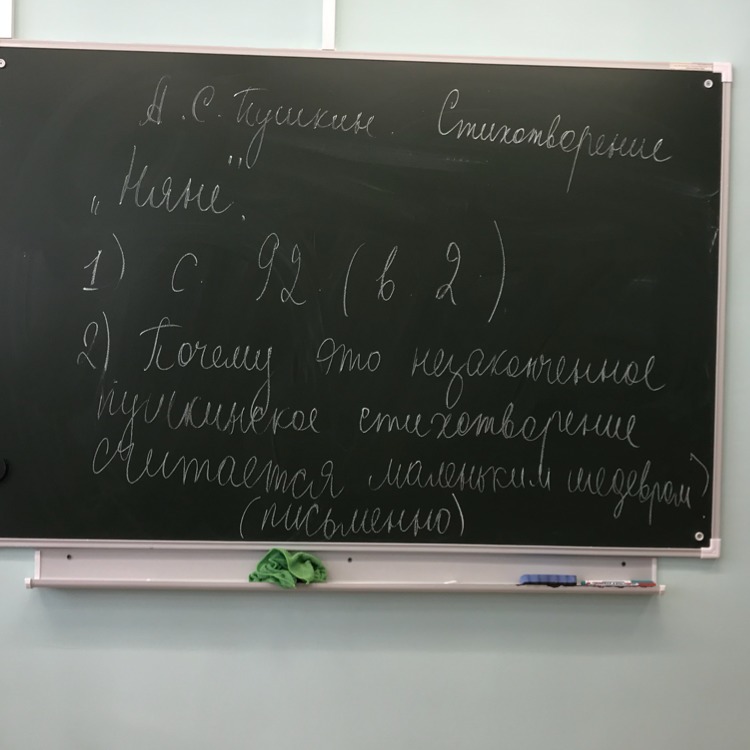 А.С. Пушкин. Стихотворение
„Няне".
1) с. 92 (в 2)
2) Почему это незаконченное
пушкинское стихотворение
считается маленьким шедевром?
(письменно)